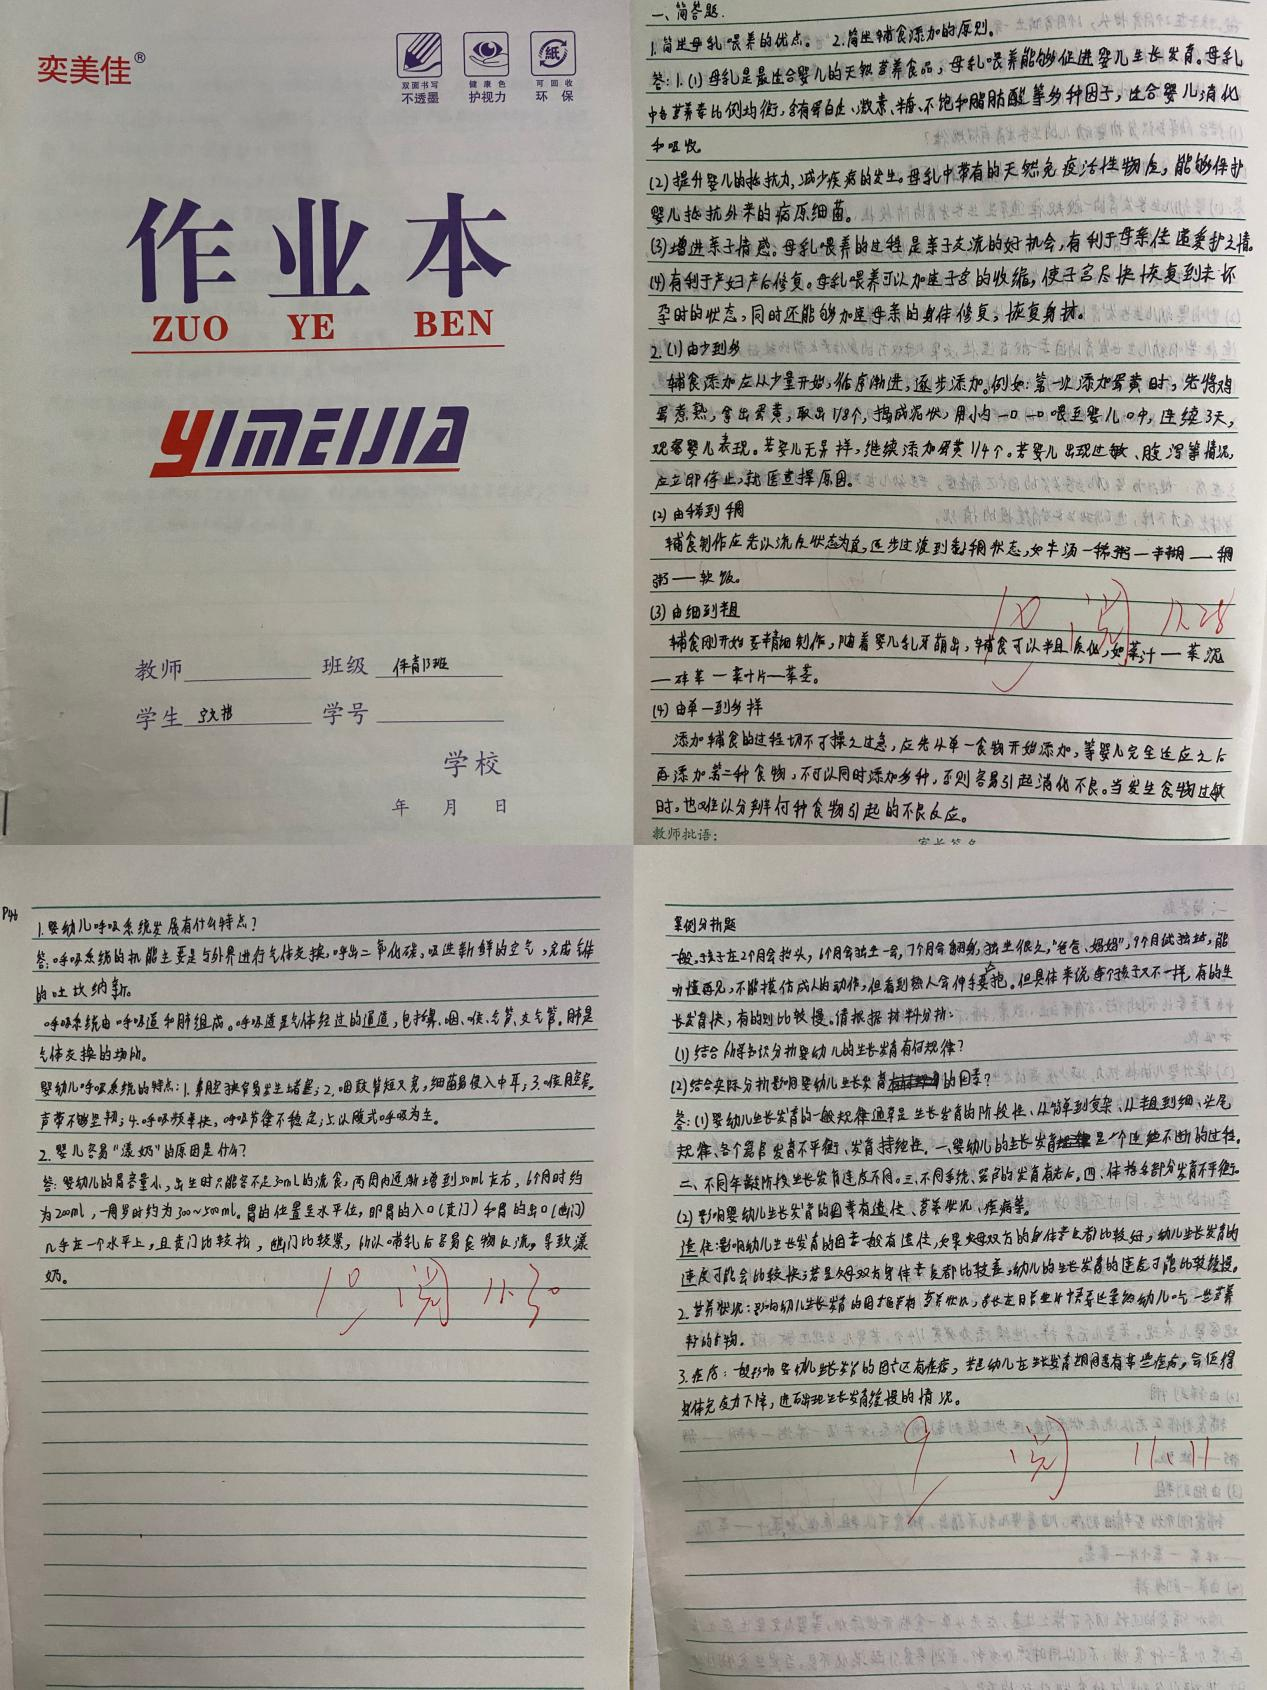 奕美佳®
双面书写
不透墨
健康色
护视力
紙
可回收
环保
作业本
ZUO YE BEN
YIMEIJIA
教师 班级 保育1班
学生 学号
学校
年 月 日
一、简答题.
1.简述母乳喂养的优点。 2.简述辅食添加的原则。
答:1.(1)母乳是最适合婴儿的天然营养食品,母乳喂养能够促进婴儿生长发育。母乳
中各营养素比例均衡,含有蛋白质、激素、半糖、不饱和脂肪酸等多种因子,适合婴儿消化
和吸收。
(2)提升婴儿的抵抗力,减少疾病的发生。母乳中带有的天然免疫活性物质,能够保护
婴儿抵抗外来的病原细菌。
(3)增进亲子情感:母乳喂养的过程是亲子交流的好机会,有利于母亲传递爱护之情。
(4)有利于产妇产后修复。母乳喂养可以加速子宫的收缩,使子宫尽快恢复到未怀
孕时的状态,同时还能够加速母亲的身体修复,恢复身材。
2.(1)由少到多
辅食添加应从少量开始,循序渐进,逐步添加。例如:第一次添加蛋黄时,先将鸡
蛋煮熟,拿出蛋黄,取出1/8个,捣成泥状,用小勺一口一口喂至婴儿口中,连续3天,
观察婴儿表现。若婴儿无异样,继续添加蛋黄1/4个。若婴儿出现过敏、腹泻等情况,
应立即停止,就医查择原因。
(2)由稀到稠
辅食制作应先以流质状态为宜,逐步过渡到黏稠状态,如牛汤一稀粥一半糊一稠
粥一软饭。
(3)由细到粗
辅食刚开始要精细制作,随着婴儿乳牙萌出,辅食可以粗质化,如菜汁一菜泥
一碎菜一菜叶片一菜茎。
(4)由单一到多样
添加辅食的过程切不可操之过急,应先从单一食物开始添加,等婴儿完全适应之后
再添加第二种食物,不可以同时添加多种,否则容易引起消化不良。当发生食物过敏
时,也难以分辨何种食物引起的不良反应。
阅 11.28
教师批语:
家长签名
P46
1.婴幼儿呼吸系统发展有什么特点?
答:呼吸系统的机能主要是与外界进行气体交换,呼出二氧化碳,吸进新鲜的空气,完成气体
的吐故纳新。
呼吸系统由呼吸道和肺组成。呼吸道是气体经过的通道,包括鼻、咽、喉、气管、支气管。肺是
气体交换的场所。
婴幼儿呼吸系统的特点:1.鼻腔狭窄易发生堵塞;2.咽鼓管短又宽,细菌易侵入中耳;3.喉腔窄。
声带不够坚韧;4.呼吸频率快,呼吸节律不稳定;5.以腹式呼吸为主。
2.婴儿容易“漾奶”的原因是什么?
答:婴幼儿的胃容量小,出生时只能容不足30ml的流食,两周内逐渐增到50ml左右,6个月时约
为200ml,一周岁时约为300~500ml。胃的位置呈水平位,即胃的入口(贲门)和胃的出口(幽门)
几乎在一个水平上,且贲门比较松,幽门比较紧,所以哺乳后容易食物反流,导致漾
奶。
阅 11.30
案例分析题
一般孩子在2个月会抬头,6个月会独坐一会,7个月会翻身,独坐很久,“爸爸、妈妈”,9个月试独站,能
听懂再见,不能模仿成人的动作,但看到熟人会伸手要抱。但具体来说每个孩子又不一样,有的生
长发育快,有的则比较慢。请根据材料分析:
(1)结合所学知识分析婴幼儿的生长发育有何规律?
(2)结合实际分析影响婴幼儿生长发育的因素?
答:(1)婴幼儿生长发育的一般规律通常是生长发育的阶段性、从简单到复杂、从粗到细、头尾
规律、各个器官发育不平衡、发育持续性。一、婴幼儿的生长发育是一个连续不断的过程。
二、不同年龄阶段生长发育速度不同。三、不同系统、器官的发育有先后。四、体格各部分发育不平衡。
(2)影响婴幼儿生长发育的因素有遗传、营养状况、疾病等。
遗传:影响幼儿生长发育的因素一般有遗传,如果父母双方的身体素质都比较好,幼儿生长发育的
速度可能会比较快;若是父母双方身体素质都比较差,幼儿的生长发育的速度可能比较缓慢。
2.营养状况:影响幼儿生长发育的因素营养状况,家长在日常生活中需要适量给幼儿吃一些营养
的食物。
3.疾病:一般影响婴幼儿生长发育的因素还有疾病,若是幼儿在生长发育期间患有某些疾病,会使得
身体免疫力下降,进而出现生长发育缓慢的情况。
9 阅 11.11